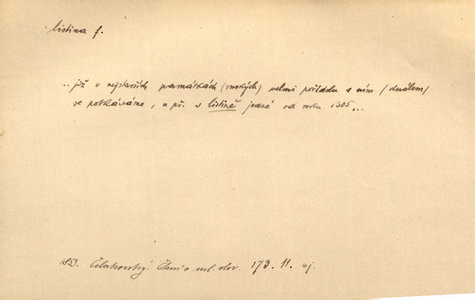 listina f.
.. již v nejstarších památkách (ruských) velmi pořídku s ním (duálem)
se potkáváme, n př. v listině jedné od roku 1305 ...
Čelakovský. Čtení o ml. slov. 173. 11. aj.